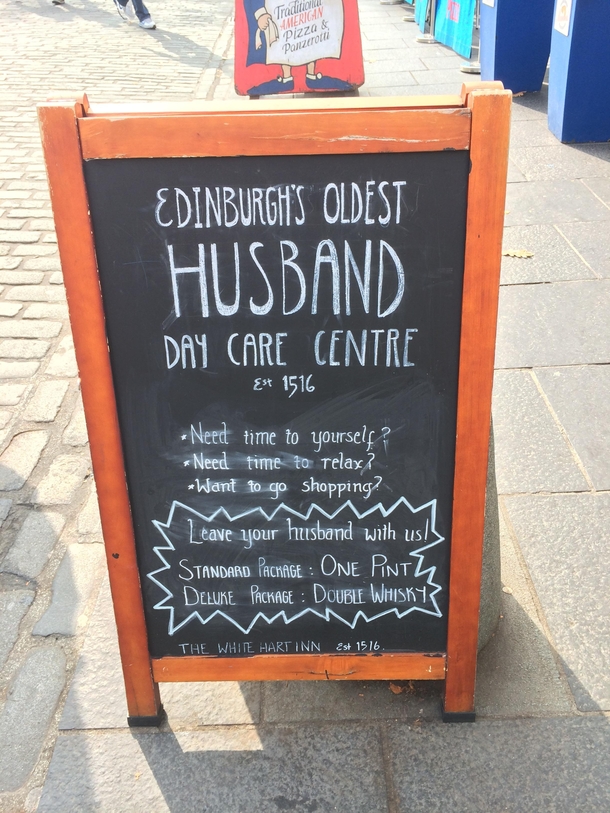 Traditional
AMERICAN
Pizza &
Panzerotti
EDINBURGH'S OLDEST
HUSBAND
DAY CARE CENTRE
Est 1516
*Need time to yourself?
*Need time to relax?
*Want to go shopping?
Leave your husband with us!
STANDARD PACKAGE : ONE PINT
DELUXE PACKAGE : DOUBLE WHISKY
THE WHITE HART INN Est 1516.